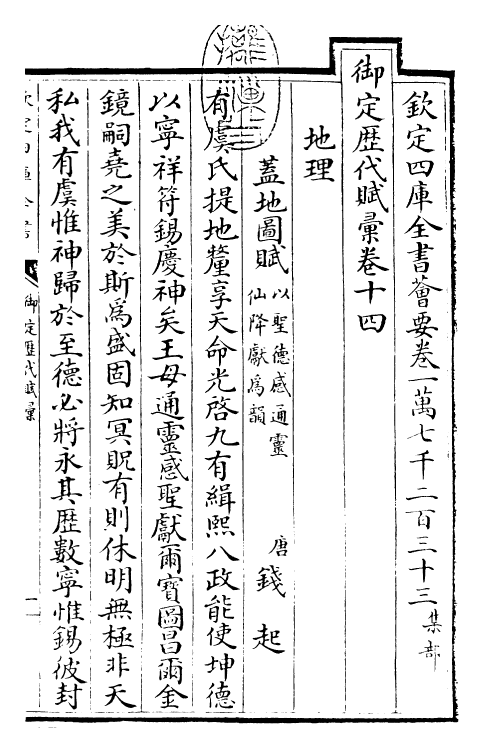 欽定四庫全書薈要卷一萬七千二百三十三 集部
御定歷代賦彙卷十四
地理
蓋地圖賦 以聖德感通靈仙降獻為韻 唐 錢起
有虞氏提地釐享天命光啓九有緝熙八政能使坤德
以寧祥符錫慶神矣王母通靈感聖獻爾寶圖昌爾金
鏡嗣堯之美於斯為盛固知冥貺有則休明無極非天
私我有虞惟神歸於至德必將永其歷數寧惟錫彼封
御定歷代賦彙
一